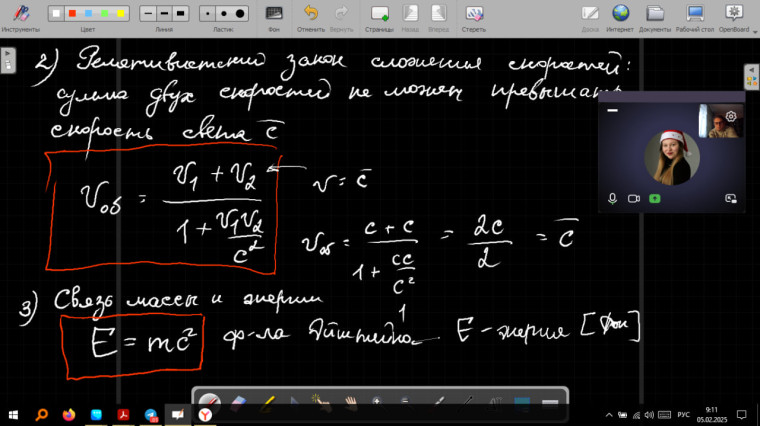 Инструменты Цвет Линия Ластик Фон Отменить Вернуть Страницы Назад Вперед Стереть Доска Интернет Документы Рабочий стол OpenBoard
2) Релятивистский закон сложения скоростей:
сумма двух скоростей не может превышать
скорость света c
V_об = (V₁ + V₂) / (1 + V₁V₂/c²) v = c
V_об = (c + c) / (1 + cc/c²) = 2c/2 = c
1
3) Связь массы и энергии
E = mc² ф-ла Эйнштейна E - энергия [Дж]
РУС
9:11
05.02.2025